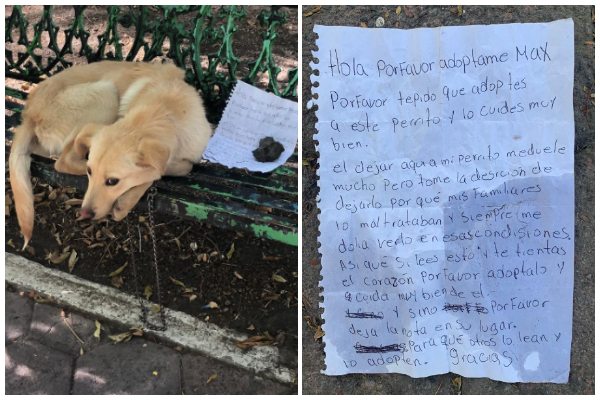 Hola PorFavor adoptame MAX
PorFavor tepido que adoptes
a este perrito y lo cuides muy
bien.
el dejar aqui a mi perrito meduele
mucho pero tome la desicion de
dejarlo por qué mis familiares
lo maltrataban y siempre me
dolia verlo en esas condisiones.
Asi qué si lees esto y te tientas
el corazon PorFavor adoptalo y
cuida muy bien de el
y si no PorFavor
deja la nota en su lugar.
Para que otros lo lean y
lo adopten. Gracias